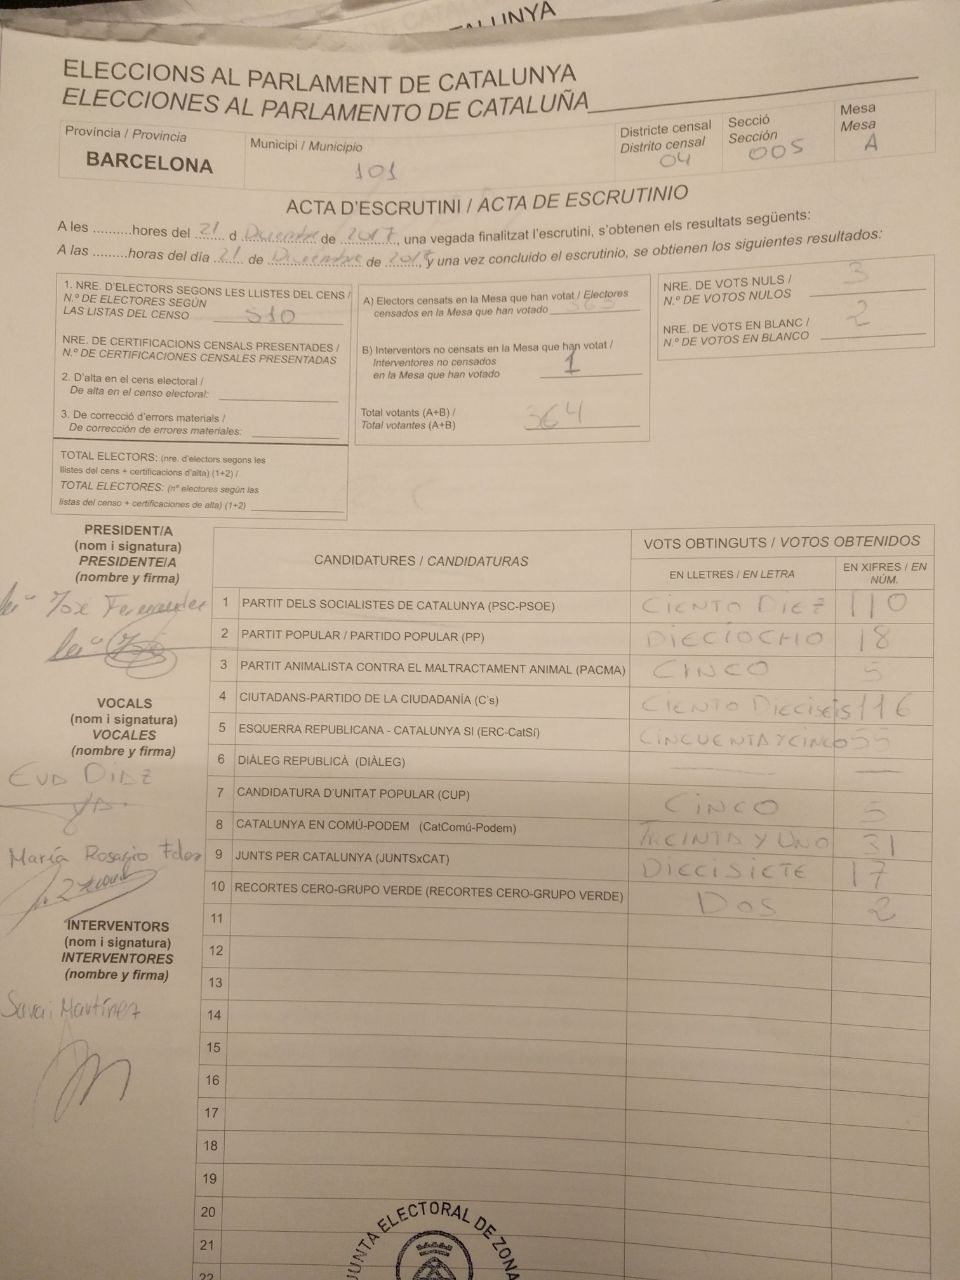 ALUNYA
ELECCIONS AL PARLAMENT DE CATALUNYA
ELECCIONES AL PARLAMENTO DE CATALUÑA
Província / Provincia
BARCELONA
Municipi / Municipio
101
Districte censal
Distrito censal
04
Secció
Sección
005
Mesa
Mesa
A
ACTA D'ESCRUTINI / ACTA DE ESCRUTINIO
A les ..........hores del 21 d Diciembre de 2017, una vegada finalitzat l'escrutini, s'obtenen els resultats següents:
A las ..........horas del día 21 de Diciembre de 2017, y una vez concluido el escrutinio, se obtienen los siguientes resultados:
1. NRE. D'ELECTORS SEGONS LES LLISTES DEL CENS /
N.º DE ELECTORES SEGÚN
LAS LISTAS DEL CENSO 510
NRE. DE CERTIFICACIONS CENSALS PRESENTADES /
N.º DE CERTIFICACIONES CENSALES PRESENTADAS
2. D'alta en el cens electoral /
De alta en el censo electoral:
3. De correcció d'errors materials /
De corrección de errores materiales:
TOTAL ELECTORS: (nre. d'electors segons les
llistes del cens + certificacions d'alta) (1+2) /
TOTAL ELECTORES: (nº electores según las
listas del censo + certificaciones de alta) (1+2)
A) Electors censats en la Mesa que han votat / Electores
censados en la Mesa que han votado 363
B) Interventors no censats en la Mesa que han votat /
Interventores no censados
en la Mesa que han votado 1
Total votants (A+B) /
Total votantes (A+B) 364
NRE. DE VOTS NULS /
N.º DE VOTOS NULOS 3
NRE. DE VOTS EN BLANC /
N.º DE VOTOS EN BLANCO 2
PRESIDENT/A
(nom i signatura)
PRESIDENTE/A
(nombre y firma)
VOCALS
(nom i signatura)
VOCALES
(nombre y firma)
Eva Diaz
María Rosario Fdez
INTERVENTORS
(nom i signatura)
INTERVENTORES
(nombre y firma)
Martínez
CANDIDATURES / CANDIDATURAS
VOTS OBTINGUTS / VOTOS OBTENIDOS
EN LLETRES / EN LETRA
EN XIFRES / EN
NÚM.
1 PARTIT DELS SOCIALISTES DE CATALUNYA (PSC-PSOE) CIENTO DIEZ 110
2 PARTIT POPULAR / PARTIDO POPULAR (PP) DIECIOCHO 18
3 PARTIT ANIMALISTA CONTRA EL MALTRACTAMENT ANIMAL (PACMA) CINCO 5
4 CIUTADANS-PARTIDO DE LA CIUDADANÍA (C's) CIENTO DIECISEIS 116
5 ESQUERRA REPUBLICANA - CATALUNYA SI (ERC-CatSí) CINCUENTA Y CINCO 55
6 DIÀLEG REPUBLICÀ (DIÀLEG) — —
7 CANDIDATURA D'UNITAT POPULAR (CUP) CINCO 5
8 CATALUNYA EN COMÚ-PODEM (CatComú-Podem) TREINTA Y UNO 31
9 JUNTS PER CATALUNYA (JUNTSxCAT) DIECISIETE 17
10 RECORTES CERO-GRUPO VERDE (RECORTES CERO-GRUPO VERDE) DOS 2
11
12
13
14
15
16
17
18
19
20
21
22
JUNTA ELECTORAL DE ZONA